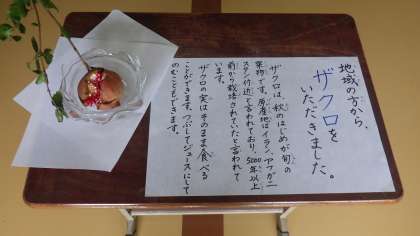 地域の方から、
ザクロを
いただきました。
ザクロは、秋のはじめが旬の
果物です。原産地はイラン、アフガニ
スタン付近と言われており、5000年以上
前から栽培されていたと言われて
います。
ザクロの実は、そのまま食べる
ことができます。つぶしてジュースにして
のむこともできます。